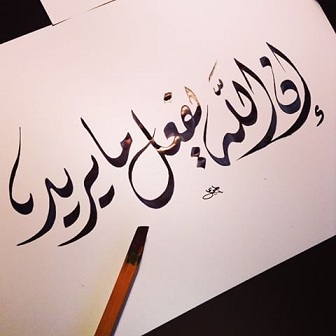 إن الله يفعل ما يريد